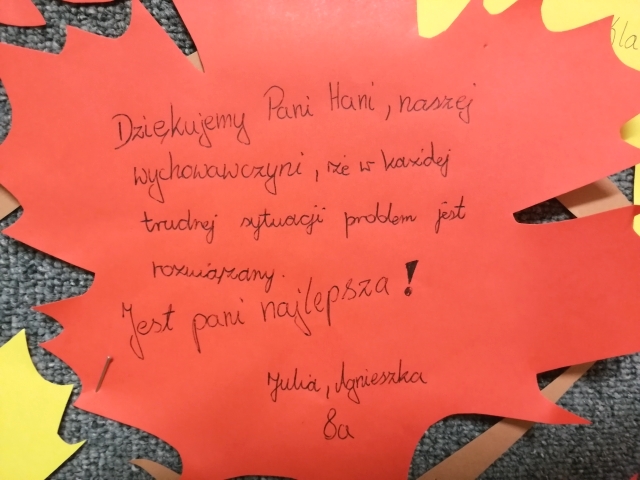 Dziękujemy Pani Hani, naszej
wychowawczyni, że w każdej
trudnej sytuacji problem jest
rozwiązany.
Jest pani najlepsza!
Julia, Agnieszka
8a
Kla